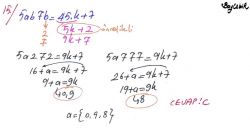 15/ 5ab7b = 45.k+7
2 5k+2
7 9k+7
5a272 = 9k+7 5a777 = 9k+7
16+a = 9k+7 26+a = 9k+7
9+a = 9k 19+a = 9k
0,9 8
CEVAP: C
a = {0, 9, 8}